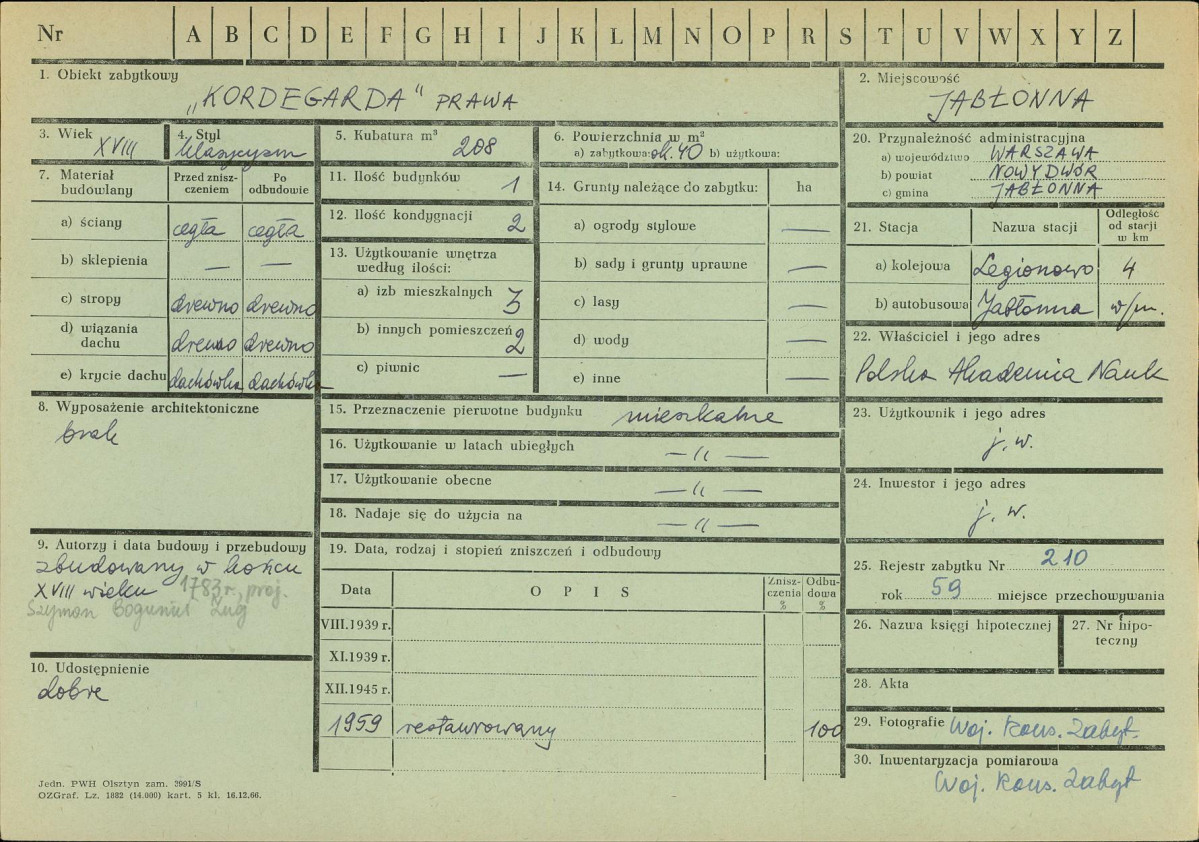 Nr A B C D E F G H I J K L M N O P R S T U V W X Y Z
1. Obiekt zabytkowy
„KORDEGARDA" PRAWA
2. Miejscowość
JABŁONNA
3. Wiek
XVIII
4. Styl
klasycyzm
5. Kubatura m³
208
6. Powierzchnia w m²
a) zabytkowa: ok. 40 b) użytkowa:
7. Materiał budowlany
Przed zniszczeniem
Po odbudowie
a) ściany cegła cegła
b) sklepienia — —
c) stropy drewno drewno
d) wiązania dachu drewno drewno
e) krycie dachu dachówka dachówka
11. Ilość budynków 1
12. Ilość kondygnacji 2
13. Użytkowanie wnętrza
według ilości:
a) izb mieszkalnych 3
b) innych pomieszczeń 2
c) piwnic —
14. Grunty należące do zabytku: ha
a) ogrody stylowe —
b) sady i grunty uprawne —
c) lasy —
d) wody —
e) inne —
20. Przynależność administracyjna
a) województwo WARSZAWA
b) powiat NOWY DWÓR
c) gmina JABŁONNA
21. Stacja
Nazwa stacji
Odległość
od stacji
w km
a) kolejowa Legionowo 4
b) autobusowa Jabłonna w/m.
22. Właściciel i jego adres
Polska Akademia Nauk
23. Użytkownik i jego adres
j. w.
24. Inwestor i jego adres
j. w.
8. Wyposażenie architektoniczne
brak
15. Przeznaczenie pierwotne budynku mieszkalne
16. Użytkowanie w latach ubiegłych — „ —
17. Użytkowanie obecne — „ —
18. Nadaje się do użycia na — „ —
9. Autorzy i data budowy i przebudowy
zbudowany w końcu
XVIII wieku 1783 r., proj.
Szymon Bogumił Zug
10. Udostępnienie
dobre
19. Data, rodzaj i stopień zniszczeń i odbudowy
Data OPIS Zniszczenia % Odbudowa %
VIII.1939 r.
XI.1939 r.
XII.1945 r.
1959 restaurowany 100
25. Rejestr zabytku Nr 210
rok 59 miejsce przechowywania
26. Nazwa księgi hipotecznej
27. Nr hipoteczny
28. Akta
29. Fotografie Woj. Kons. Zabyt.
30. Inwentaryzacja pomiarowa
Woj. Kons. Zabyt
Jedn. PWH Olsztyn zam. 3991/S
OZGraf. Lz. 1882 (14.000) kart. 5 kl. 16.12.66.